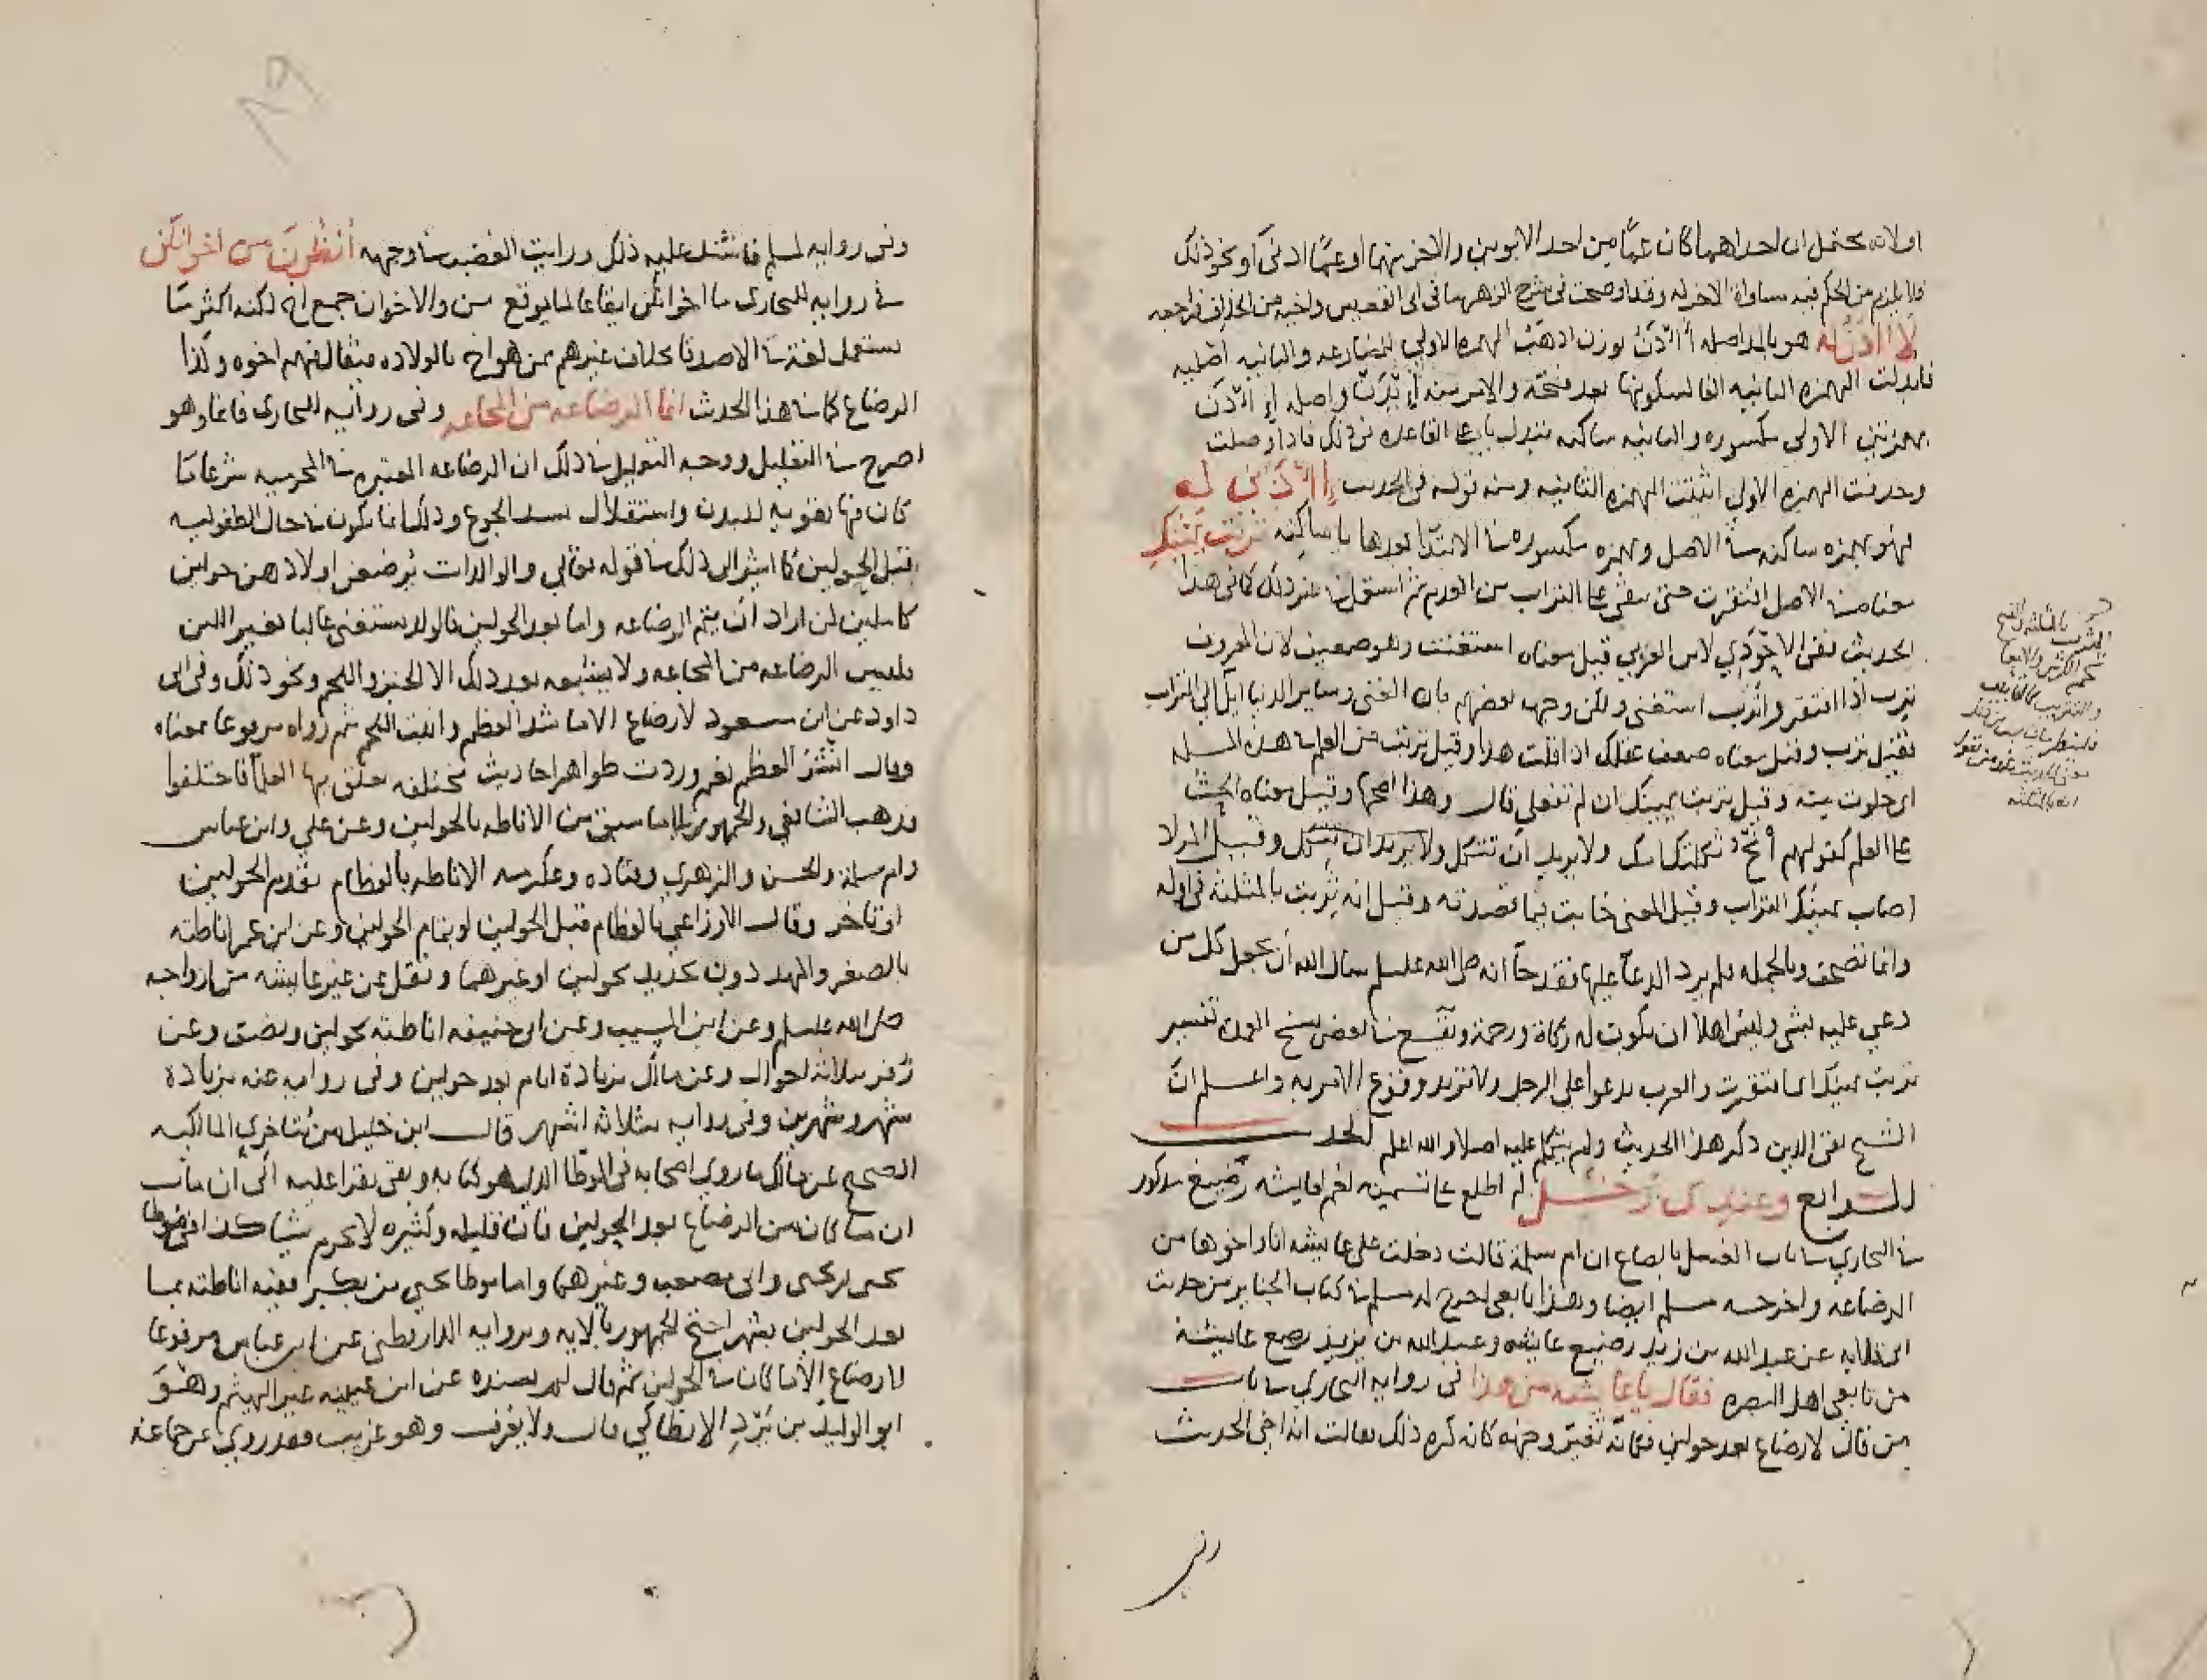 اولانه يحتمل ان احداهما كان عمًّا من احد الابوين والاخر منهما او عمًّا ادنى او نحو ذلك
فلا يلزم من الحكم فيه مساواة الاخر له وقد اوضحت في شرح الزهر ما في ابي القعيس واخيه من الخلاف فراجعه
لا آذن له هو بالمد اصله أَأْذن بوزن اذهب الهمزه الاولى للمضارعه والثانيه اصليه
فابدلت الهمزه الثانيه الفا لسكونها بعد فتحه والامر منه ايذن واصله اِئْذن
بهمزتين الاولى مكسوره والثانيه ساكنه تبدل يا على القاعده في ذلك فاذا وصلت
وحذفت الهمزه الاولى اثبتت الهمزه الثانيه ومنه قوله في الحديث ائذني له
فهو بهمزه ساكنه في الاصل وبهمزه مكسوره في الابتدا بعدها يا ساكنه تربت يمينك
معناه في الاصل افتقرت حتى على التراب من العدم ثم استعمل في غير ذلك كما في هذا
الحديث ففي الاحوذي لابن العربي قيل معناه استغنت وهو ضعيف لان المعروف
ترب اذا افتقر واترب استغنى ولكن وجهه بعضهم بان الغنى وساير الدنيا ايل الى التراب
فقيل ترب وقيل معناه ضعف عقلك اذا قلت هذا وقيل تربت من العلم في هذه المسله
اي خلوت منه وقيل تربت يمينك ان لم تفعلي قال وهذا اصحها وقيل معناه الحث
على العلم كقولهم انج ثكلتك امك ولا يريد ان تثكل وقيل المراد
اصاب يمينك التراب وقيل المعنى خابت فيما قصدته وقيل انه ثربت بالمثلثه في اوله
وانما تصحف وبالجمله فلم يرد الدعا عليها فقد جا انه صلى الله عليه وسلم سال الله ان يجعل كل من
دعي عليه بشي وليس اهلا ان يكون له زكاة ورحمة ويقع في بعض نسخ العمده تفسير
تربت يمينك اي افتقرت والعرب يدعوا على الرجل ولا تريد وقوع الامر به واعلم ان
الشيخ تقي الدين ذكر هذا الحديث ولم يتكلم عليه اصلا والله اعلم الحديث
الرابع وعندي رجل لم اطلع على تسميته نعم لعايشه رضيع مذكور
في البخاري في باب الغسل بالصاع ان ام سلمة قالت دخلت على عايشه انا واخوها من
الرضاعه واخرجه مسلم ايضا وهذا تابعي اخرج له مسلم في كتاب الجنايز من حديث
ابي قلابه عن عبد الله بن زيد رضيع عايشه وعبد الله بن يزيد رضيع عايشه
من تابعي اهل البصره فقال يا عايشه من هذا في رواية البخاري في باب
من قال لا رضاع بعد حولين فكانه تغير وجهه كانه كره ذلك فقالت انه اخي الحديث
وفي
بالمثلثه
وفي روايه لمسلم فاشتد عليه ذلك ورايت الغضب في وجهه انظرن من اخوانكن
في روايه للبخاري ما اخوانكن ايقاعا لما موقع من والاخوان جمع اخ لكنه اكثر ما
يستعمل لغة في الاصدقا بخلاف غيرهم ممن هو اخ بالولاده فيقال فيهم اخوه وكذا
الرضاع كما في هذا الحديث انما الرضاعه من المجاعه وفي روايه البخاري فانما وهو
اصرح في التعليل ووجه التعليل في ذلك ان الرضاعه المعتبره في المحرميه شرعا ما
كان فيها تقويه للبدن واستقلال بسد الجوع وذلك انما يكون في حال الطفوليه
قبل الحولين كما اشير الى ذلك في قوله تعالي والوالدات يرضعن اولادهن حولين
كاملين لمن اراد ان يتم الرضاعه واما بعد الحولين فالولد يستغني غالبا بغير اللبن
فليس الرضاعه من المجاعه ولا يشبعه بعد ذلك الا الخبز واللحم ونحو ذلك وفي ابي
داود عن ابن مسعود لا رضاع الا ما شد العظم وانبت اللحم ثم رواه مرفوعا بمعناه
وقال انشز العظم نعم وردت ظواهر احاديث مختلفه تعلق بها العلما فاختلفوا
فذهب الشافعي والجمهور الى ما سبق من الاناطه بالحولين وعن علي وابن عباس
وام سلمة والحسن والزهري وقتاده وعكرمه الاناطه بالفطام تقدم الحولين
او تاخر وقال الاوزاعي بالفطام قبل الحولين او بتمام الحولين وعن ابن عمر اناطته
بالصغر والمهد دون تحديد بحولين او غيرهما ونقل عن غير عايشه من ازواجه
صلى الله عليه وسلم وعن ابن المسيب وعن ابي حنيفه اناطته بحولين ونصف وعن
زفر بثلاثة احوال وعن مالك بزيادة ايام بعد حولين وفي روايه عنه بزيادة
شهر وشهرين وفي روايه بثلاثه اشهر قال ابن خليل من متاخري المالكيه
الصحيح عن مالك ما روي اصحابه في الموطا الذي هو كتابه وبقي يقرا عليه الى ان مات
ان ما كان من الرضاع بعد الحولين فان قليله وكثيره لا يحرم شيا كذا في موطا
يحيى بن يحيى وابي مصعب وغيرهما واما موطا يحيى بن بكير ففيه اناطته بما
بعد الحولين بشهر احتج الجمهور بالايه وبروايه الدارقطني عن ابن عباس مرفوعا
لا رضاع الا ما كان في الحولين ثم قال لم يسنده عن ابن عيينه غير الهيثم وهو
ابو الوليد بن برد الانطاكي قال ولا يعرف وهو غريب فقد روي عن جماعة